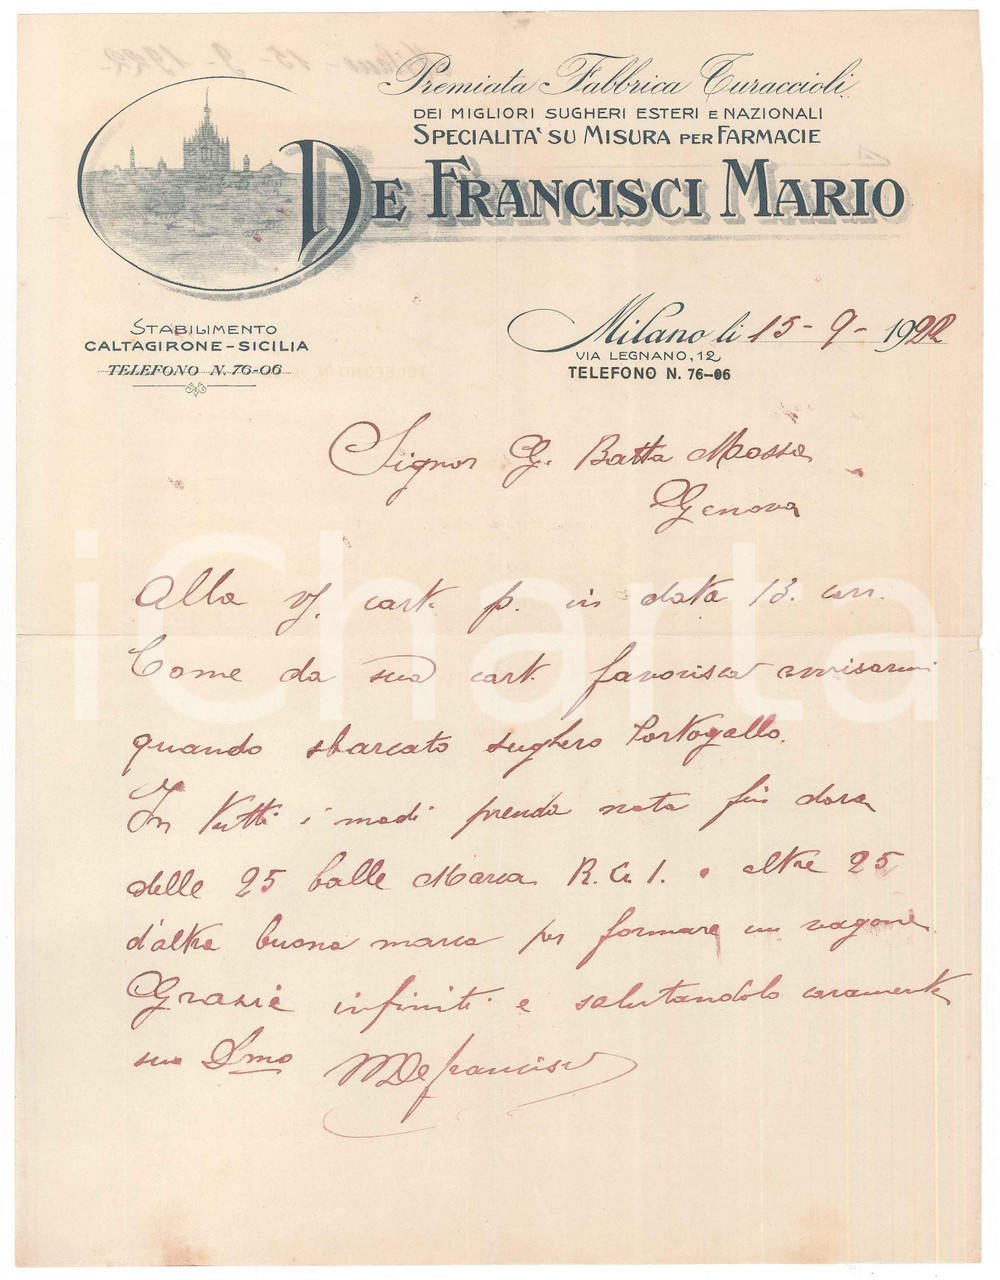 Premiata Fabbrica Turaccioli
DEI MIGLIORI SUGHERI ESTERI E NAZIONALI
SPECIALITA' SU MISURA PER FARMACIE
DE FRANCISCI MARIO
STABILIMENTO
CALTAGIRONE-SICILIA
TELEFONO N. 76-06
Milano li 15-9-1922
VIA LEGNANO, 12
TELEFONO N. 76-06
Signor G. Batta Mossa
Genova
Alla v/. cart. p. in data 13. corr.
Come da sua cart. favorisca avvisarmi
quando sbarcato sughero Portogallo.
In tutti i modi prenda nota fin d'ora
delle 25 balle Marca R.G.I. e altre 25
d'altra buona marca per formare un vagone.
Grazie infiniti e salutandolo caramente
suo Dmo MDefrancisci
iCharta